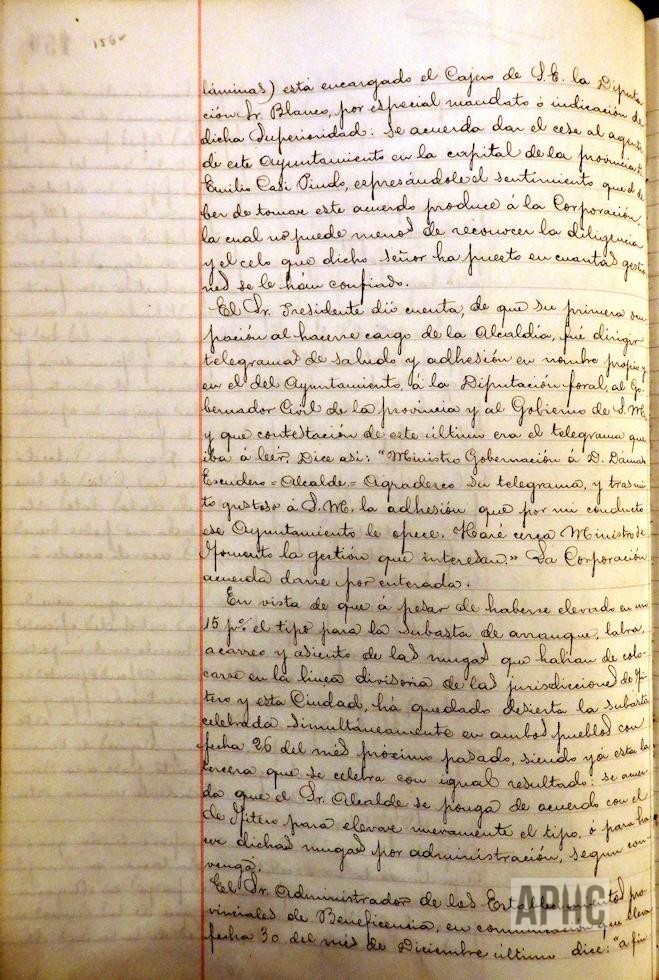 156v
láminas) está encargado el Cajero de S.E. la Diputa
ción Sr. Blanco, por especial mandato ó indicación de
dicha Superioridad: se acuerda dar el cese al agente
de este Ayuntamiento en la capital de la provincia
Emilio Casi Pindo, expresándole el sentimiento que el de
ber de tomar este acuerdo produce á la Corporación,
la cual no puede menos de reconocer la diligencia
y el celo que dicho señor ha puesto en cuantas gestio
nes se le han confiado.
El Sr. Presidente dió cuenta, de que su primera ocu
pación al hacerse cargo de la Alcaldía, fué dirigir
telegramas de saludo y adhesión en nombre propio y
en el del Ayuntamiento, á la Diputación foral, al Go
bernador Civil de la provincia y al Gobierno de S.M.,
y que contestación de este último era el telegrama que
iba á leer. Dice asi: "Ministro Gobernación á D. Dámaso
Escudero = Alcalde = Agradezco su telegrama, y trasmi
to gustoso á S.M. la adhesión que por mi conducto
ese Ayuntamiento le ofrece. Haré cerca Ministro de
Fomento la gestión que interesan." La Corporación
acuerda darse por enterada.
En vista de que á pesar de haberse elevado en un
15 p% el tipo para la subasta de arranque, labra,
acarreo y asiento de las mugas que habían de colo
carse en la linea divisoria de las jurisdicciones de Fi
tero y esta Ciudad, há quedado desierta la subasta
celebrada simultáneamente en ambos pueblos con
fecha 26 del més próximo pasado, siendo yá esta la
tercera que se celebra con igual resultado: se acuer
da que el Sr. Alcalde se ponga de acuerdo con el
de Fitero para elevar nuevamente el tipo, ó para ha
cer dichas mugas por administración, segun con
venga.
El Sr. Administrador de los Establecimientos pro
vinciales de Beneficencia, en comunicación que lleva
fecha 30 del més de Diciembre último dice: "a fin
APHC